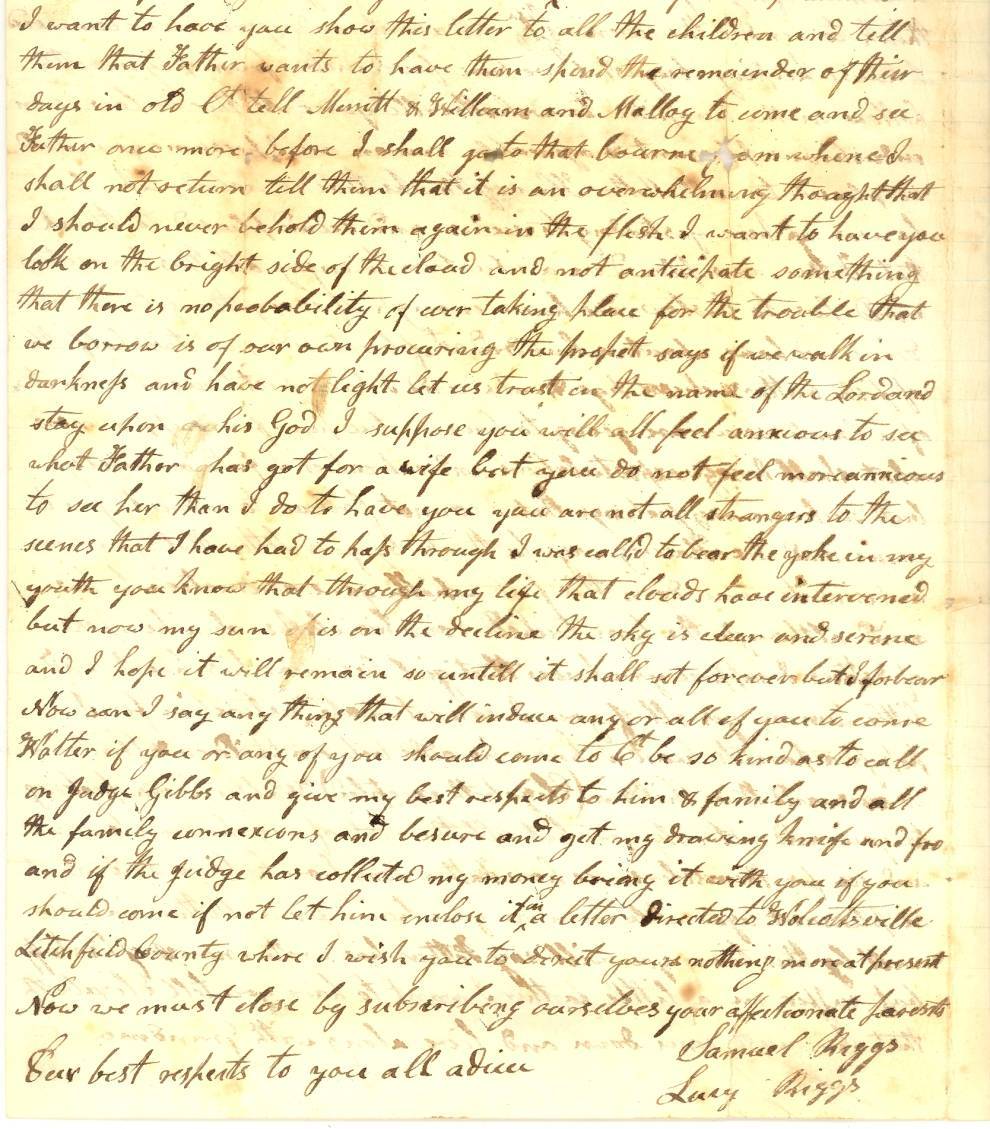 I want to have you show this letter to all the children and tell
them that Father wants to have them spend the remainder of their
days in old Ct tell Merritt & William and Mallog to come and see
Father once more before I shall go to that bourne from whence I
shall not return tell them that it is an overwhelming thought that
I should never behold them again in the flesh I want to have you
look on the bright side of the cloud and not anticipate something
that there is no probability of ever taking place for the trouble that
we borrow is of our own procuring the prophet says if we walk in
darkness and have not light let us trust in the name of the Lord and
stay upon his God I suppose you will all feel anxious to see
what Father has got for a wife but you do not feel more anxious
to see her than I do to have you you are not all strangers to the
scenes that I have had to pass through I was calld to bear the yoke in my
youth you know that through my life that clouds have intervened
but now my sun is on the decline the sky is clear and serene
and I hope it will remain so untill it shall set forever but I forbear
Now can I say any thing that will induce any or all of you to come
Walter if you or any of you should come to Ct be so kind as to call
on Judge Gibbs and give my best respects to him & family and all
the family connexcons and besure and get my drawing knife and fro
and if the Judge has collected my money bring it with you if you
should come if not let him inclose it in a letter directed to Wolcottsville
Litchfield County where I wish you to direct yours nothing more at present
Now we must close by subscribing ourselves your affectionate parents
Samuel Riggs
Our best respects to you all adieu
Lucy Riggs